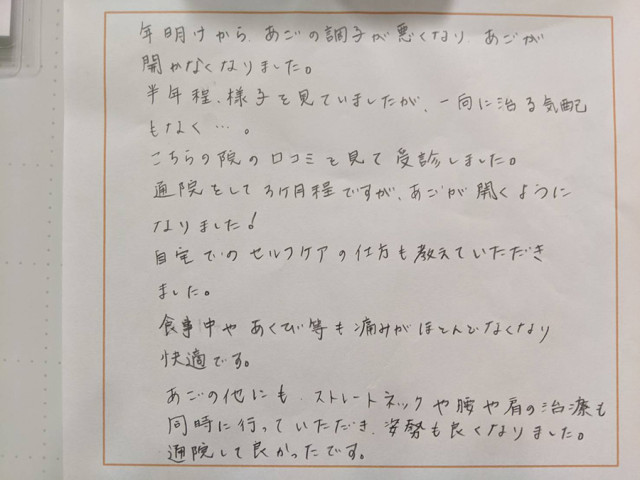 年明けから、あごの調子が悪くなり、あごが
開かなくなりました。
半年程、様子を見ていましたが、一向に治る気配
もなく…。
こちらの院の口コミを見て受診しました。
通院をして3ヶ月程ですが、あごが開くように
なりました!
自宅でのセルフケアの仕方も教えていただき
ました。
食事中やあくび等も痛みがほとんどなくなり
快適です。
あごの他にも、ストレートネックや腰や肩の治療も
同時に行っていただき、姿勢も良くなりました。
通院して良かったです。